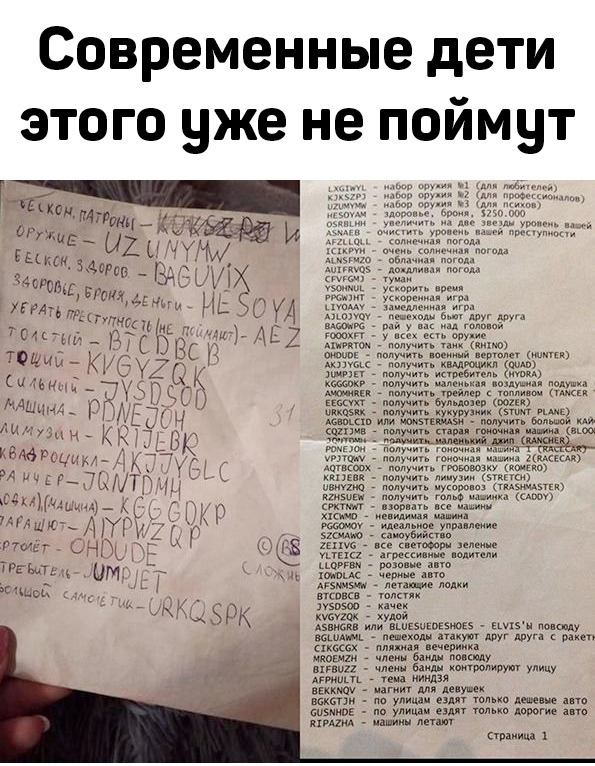 Современные дети
этого уже не поймут
БЕСКОН. ПАТРОНЫ –
ОРУЖИЕ – UZUMYMW
БЕСКОН. ЗДОРОВ. – BAGUVIX
ЗДОРОВЬЕ, БРОНЯ, ДЕНЬГИ – HESOYA
УБРАТЬ ПРЕСТУПНОСТЬ (НЕ ПОЙМАЮТ) – AEZ
ТОЛСТЫЙ – BTCDBCB
ТОЩИЙ – KVGYZQK
СИЛЬНЫЙ – JYSDSOD
МАШИНА – PDNEJOH
ЛИМУЗИН – KRIJEBR
КВАДРОЦИКЛ – AKJJYGLC
РАНЧЕР – JQNTDMH
ОДКА),(МАШИНА) – KGGGDKP
ПАРАШЮТ – AIYPWZQP
РТОЛЁТ – OHDUDE
ТРЕБИТЕЛЬ – JUMPJET
БОЛЬШОЙ САМОЛЁТИК – URKQSPK
31
LXGIWYL - набор оружия №1 (для любителей)
KJKSZPJ - набор оружия №2 (для профессионалов)
UZUMYMW - набор оружия №3 (для психов)
HESOYAM - здоровье, броня, $250.000
OSRBLHH - увеличить на две звезды уровень вашей
ASNAEB - очистить уровень вашей преступности
AFZLLQLL - солнечная погода
ICIKPYH - очень солнечная погода
ALNSFMZO - облачная погода
AUIFRVQS - дождливая погода
CFVFGMJ - туман
YSOHNUL - ускорить время
PPGWJHT - ускоренная игра
LIYOAAY - замедленная игра
AJLOJYQY - пешеходы бьют друг друга
BAGOWPG - рай у вас над головой
FOOOXFT - у всех есть оружие
AIWPRTON - получить танк (RHINO)
OHDUDE - получить военный вертолет (HUNTER)
AKJJYGLC - получить КВАДРОЦИКЛ (QUAD)
JUMPJET - получить истребитель (HYDRA)
KGGGDKP - получить маленькая воздушная подушка
AMOMHRER - получить трейлер с топливом (TANCER
EEGCYXT - получить бульдозер (DOZER)
URKQSRK - получить кукурузник (STUNT PLANE)
AGBDLCID ИЛИ MONSTERMASH - получить большой КАЙ
CQZIJMB - получить старая гоночная машина (BLOO
JQNTDMH - получить маленький джип (RANCHER)
PDNEJOH - получить гоночная машина 1 (RACECAR)
VPJTQWV - получить гоночная машина 2(RACECAR)
AQTBCODX - получить ГРОБОВОЗКУ (ROMERO)
KRIJEBR - получить лимузин (STRETCH)
UBHYZHQ - получить мусоровоз (TRASHMASTER)
RZHSUEW - получить гольф машинка (CADDY)
CPKTNWT - взорвать все машины
XICWMD - невидимая машина
PGGOMOY - идеальное управление
SZCMAWO - самоубийство
ZEIIVG - все светофоры зеленые
YLTEICZ - агрессивные водители
LLQPFBN - розовые авто
IOWDLAC - черные авто
AFSNMSMW - летающие лодки
BTCDBCB - толстяк
JYSDSOD - качек
KVGYZQK - худой
ASBHGRB или BLUESUEDESHOES - ELVIS'ы повсюду
BGLUAWML - пешеходы атакуют друг друга с ракетн
CIKGCGX - пляжная вечеринка
MROEMZH - члены банды повсюду
BIFBUZZ - члены банды контролируют улицу
AFPHULTL - тема НИНДЗЯ
BEKKNQV - магнит для девушек
BGKGTJH - по улицам ездят только дешевые авто
GUSNHDE - по улицам ездят только дорогие авто
RIPAZHA - машины летают
Страница 1